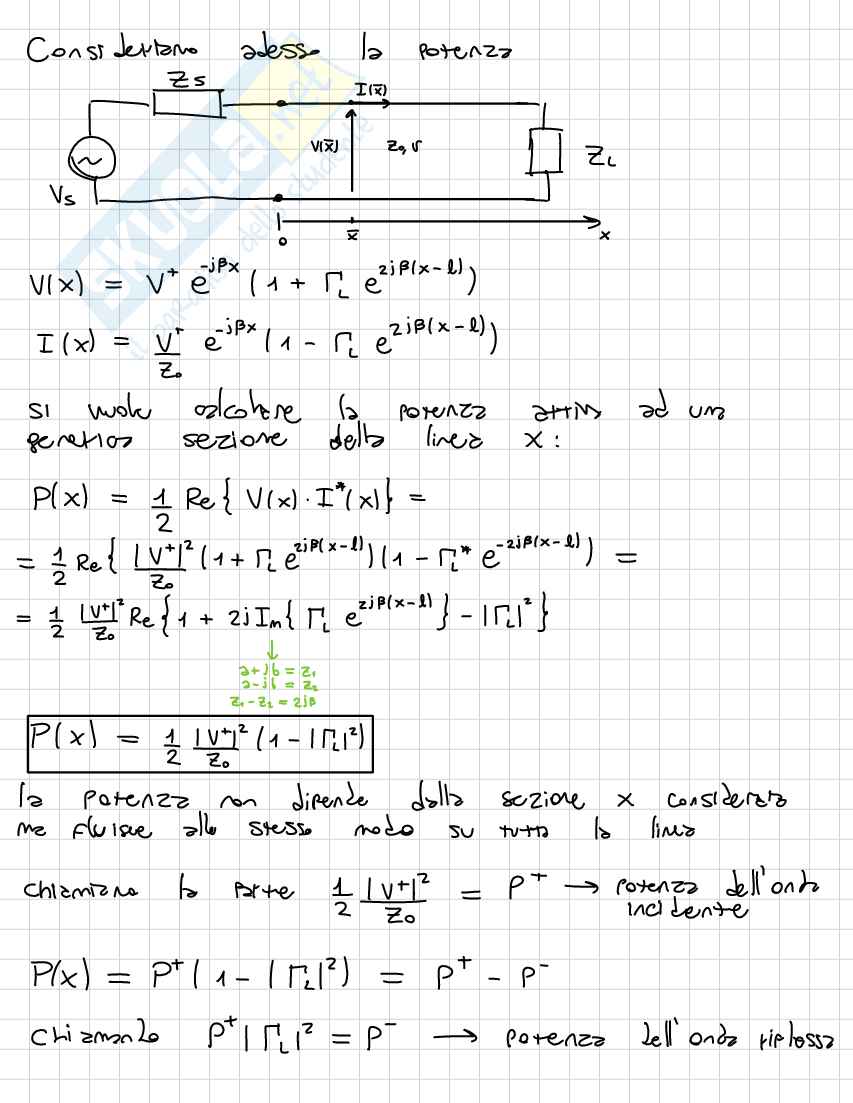 Consideriamo adesso la potenza
Zs
I(x̅)
V(x̅)
Z₀, v
Z_L
Vs
0
x̅
x
SKUOLA.net
V(x) = V⁺ e^{-jβx} (1 + Γ_L e^{2jβ(x-l)})
I(x) = V⁺/Z₀ e^{-jβx} (1 - Γ_L e^{2jβ(x-l)})
si vuole calcolare la potenza ad una
generica sezione della linea x:
P(x) = 1/2 Re{ V(x)·I*(x)} =
= 1/2 Re{ |V⁺|²/Z₀ (1 + Γ_L e^{2jβ(x-l)})(1 - Γ_L* e^{-2jβ(x-l)}) } =
= 1/2 |V⁺|²/Z₀ Re{1 + 2j Im{ Γ_L e^{2jβ(x-l)}} - |Γ_L|²}
a+jb = z₁
a-jb = z₂
z₁ - z₂ = 2jβ
P(x) = 1/2 |V⁺|²/Z₀ (1 - |Γ_L|²)
la potenza non dipende dalla sezione x considerata
ma fluisce allo stesso modo su tutta la linea
chiamiamo la parte 1/2 |V⁺|²/Z₀ = P⁺ → potenza dell'onda
incidente
P(x) = P⁺(1 - |Γ_L|²) = P⁺ - P⁻
chiamando P⁺|Γ_L|² = P⁻ → potenza dell'onda riflessa